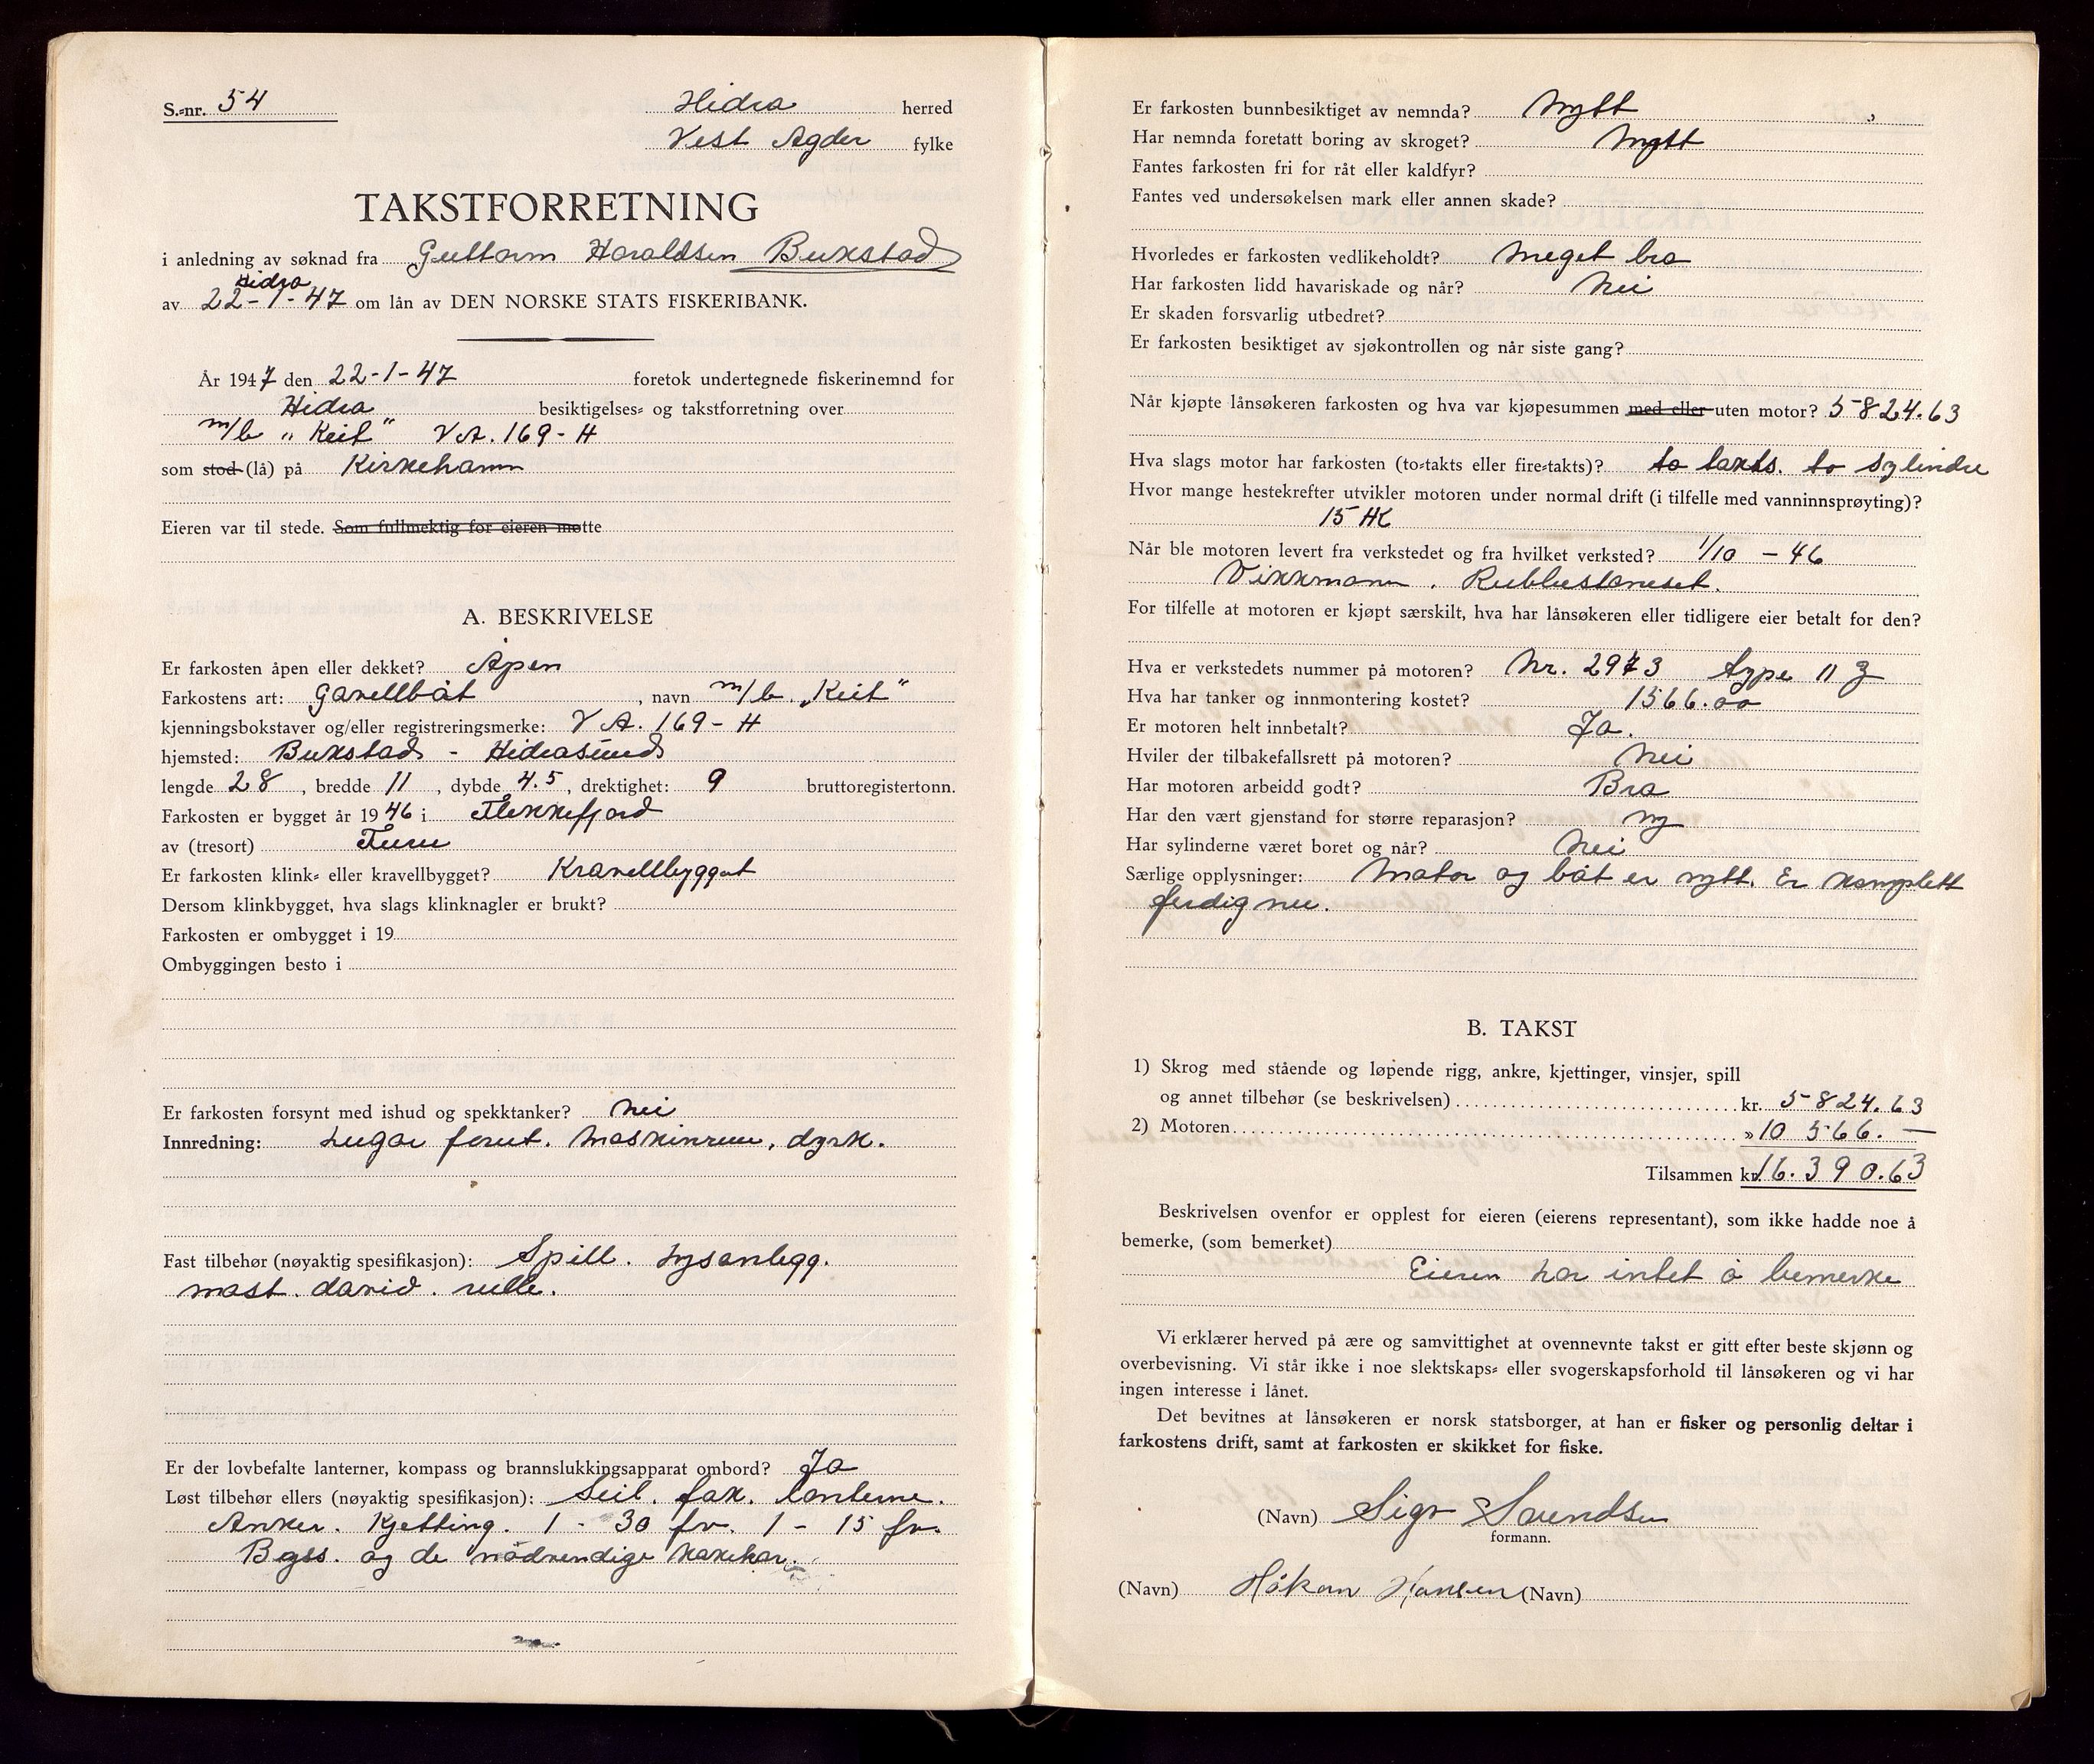 S.-nr. 54
Hidra herred
Vest Agder fylke
TAKSTFORRETNING
i anledning av søknad fra Guttorm Haraldsen Buxstad
Hidra
av 22-1-47 om lån av DEN NORSKE STATS FISKERIBANK.
År 1947 den 22-1-47 foretok undertegnede fiskerinemnd for
Hidra besiktigelses- og takstforretning over
m/b "Keit" V.A. 169-H
som stod (lå) på Kirkehamn
Eieren var til stede. Som fullmektig for eieren møtte
A. BESKRIVELSE
Er farkosten åpen eller dekket? Åpen
Farkostens art: Gavellbåt, navn m/b. "Keit"
kjenningsbokstaver og/eller registreringsmerke: V A. 169-H
hjemsted: Buxstad - Hidrasund
lengde 28, bredde 11, dybde 4.5, drektighet: 9 bruttoregistertonn.
Farkosten er bygget år 1946 i Flekkefjord
av (tresort) Furu
Er farkosten klink- eller kravellbygget? Kravellbygget
Dersom klinkbygget, hva slags klinknagler er brukt?
Farkosten er ombygget i 19
Ombyggingen besto i
Er farkosten forsynt med ishud og spekktanker? Nei
Innredning: Lugar forut. Maskinrum, dyrk.
Fast tilbehør (nøyaktig spesifikasjon): Spill. Lysanlegg.
mast. david. rulle.
Er der lovbefalte lanterner, kompass og brannslukkingsapparat ombord? Ja
Løst tilbehør ellers (nøyaktig spesifikasjon): Seil. fax. lanterne.
Anker. Kjetting. 1 - 30 fv. 1 - 15 fv.
Bøss. og de nödvendige kar.
Er farkosten bunnbesiktiget av nemnda? Nytt
Har nemnda foretatt boring av skroget? Nytt
Fantes farkosten fri for råt eller kaldfyr?
Fantes ved undersøkelsen mark eller annen skade?
Hvorledes er farkosten vedlikeholdt? Meget bra
Har farkosten lidd havariskade og når? Nei
Er skaden forsvarlig utbedret?
Er farkosten besiktiget av sjøkontrollen og når siste gang?
Når kjøpte lånsøkeren farkosten og hva var kjøpesummen med eller uten motor? 5824.63
Hva slags motor har farkosten (to-takts eller fire-takts)? to takts. to sylindre
Hvor mange hestekrefter utvikler motoren under normal drift (i tilfelle med vanninnsprøyting)?
15 HK
Når ble motoren levert fra verkstedet og fra hvilket verksted? 1/10 - 46
Vikkmann. Rubbestaneset.
For tilfelle at motoren er kjøpt særskilt, hva har lånsøkeren eller tidligere eier betalt for den?
Hva er verkstedets nummer på motoren? Nr. 2973 type 11 Z
Hva har tanker og innmontering kostet? 1566.00
Er motoren helt innbetalt? Ja.
Hviler der tilbakefallsrett på motoren? Nei
Har motoren arbeidd godt? Bra
Har den vært gjenstand for større reparasjon? Ny
Har sylinderne været boret og når? Nei
Særlige opplysninger: Motor og båt er nytt. Er komplett
ferdig nu.
B. TAKST
1) Skrog med stående og løpende rigg, ankre, kjettinger, vinsjer, spill
og annet tilbehør (se beskrivelsen) kr. 5824.63
2) Motoren » 10 566. —
Tilsammen kr. 16.390.63
Beskrivelsen ovenfor er opplest for eieren (eierens representant), som ikke hadde noe å
bemerke, (som bemerket)
Eieren har intet å bemerke
Vi erklærer herved på ære og samvittighet at ovennevnte takst er gitt efter beste skjønn og
overbevisning. Vi står ikke i noe slektskaps- eller svogerskapsforhold til lånsøkeren og vi har
ingen interesse i lånet.
Det bevitnes at lånsøkeren er norsk statsborger, at han er fisker og personlig deltar i
farkostens drift, samt at farkosten er skikket for fiske.
(Navn) Sigv Svendsen
formann.
(Navn) Håkon Hansen (Navn)